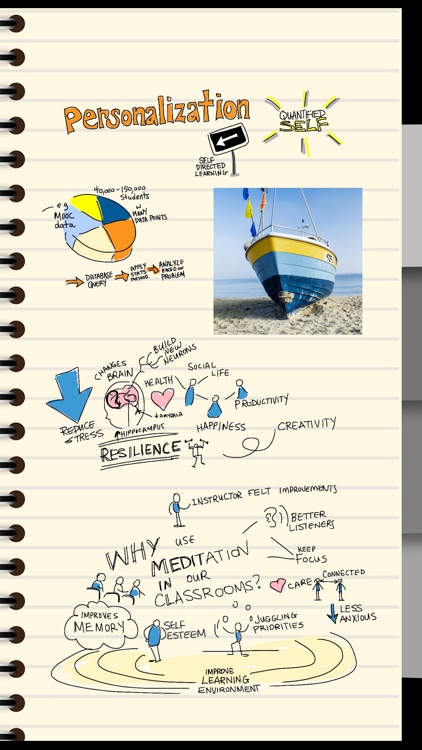 Personalization
QUANTIFIED
SELF
SELF
DIRECTED
LEARNING
40,000-150,000
Students
e.g
MOOC
data
W
MANY
DATA POINTS
DATABASE
QUERY
APPLY
STATS
METHOD
ANALYZE
BASED ON
PROBLEM
BUILD
NEW
NEURONS
CHANGES
BRAIN
HEALTH
SOCIAL
LIFE
PRODUCTIVITY
REDUCE
STRESS
AMYGALA
HIPPOCAMPUS
HAPPINESS
CREATIVITY
RESILIENCE
INSTRUCTOR FELT IMPROVEMENTS
BETTER
LISTENERS
WHY USE
MEDITATION
IN OUR
CLASSROOMS?
KEEP
FOCUS
CARE
CONNECTED
LESS
ANXIOUS
IMPROVES
MEMORY
SELF
ESTEEM
JUGGLING
PRIORITIES
IMPROVE
LEARNING
ENVIRONMENT